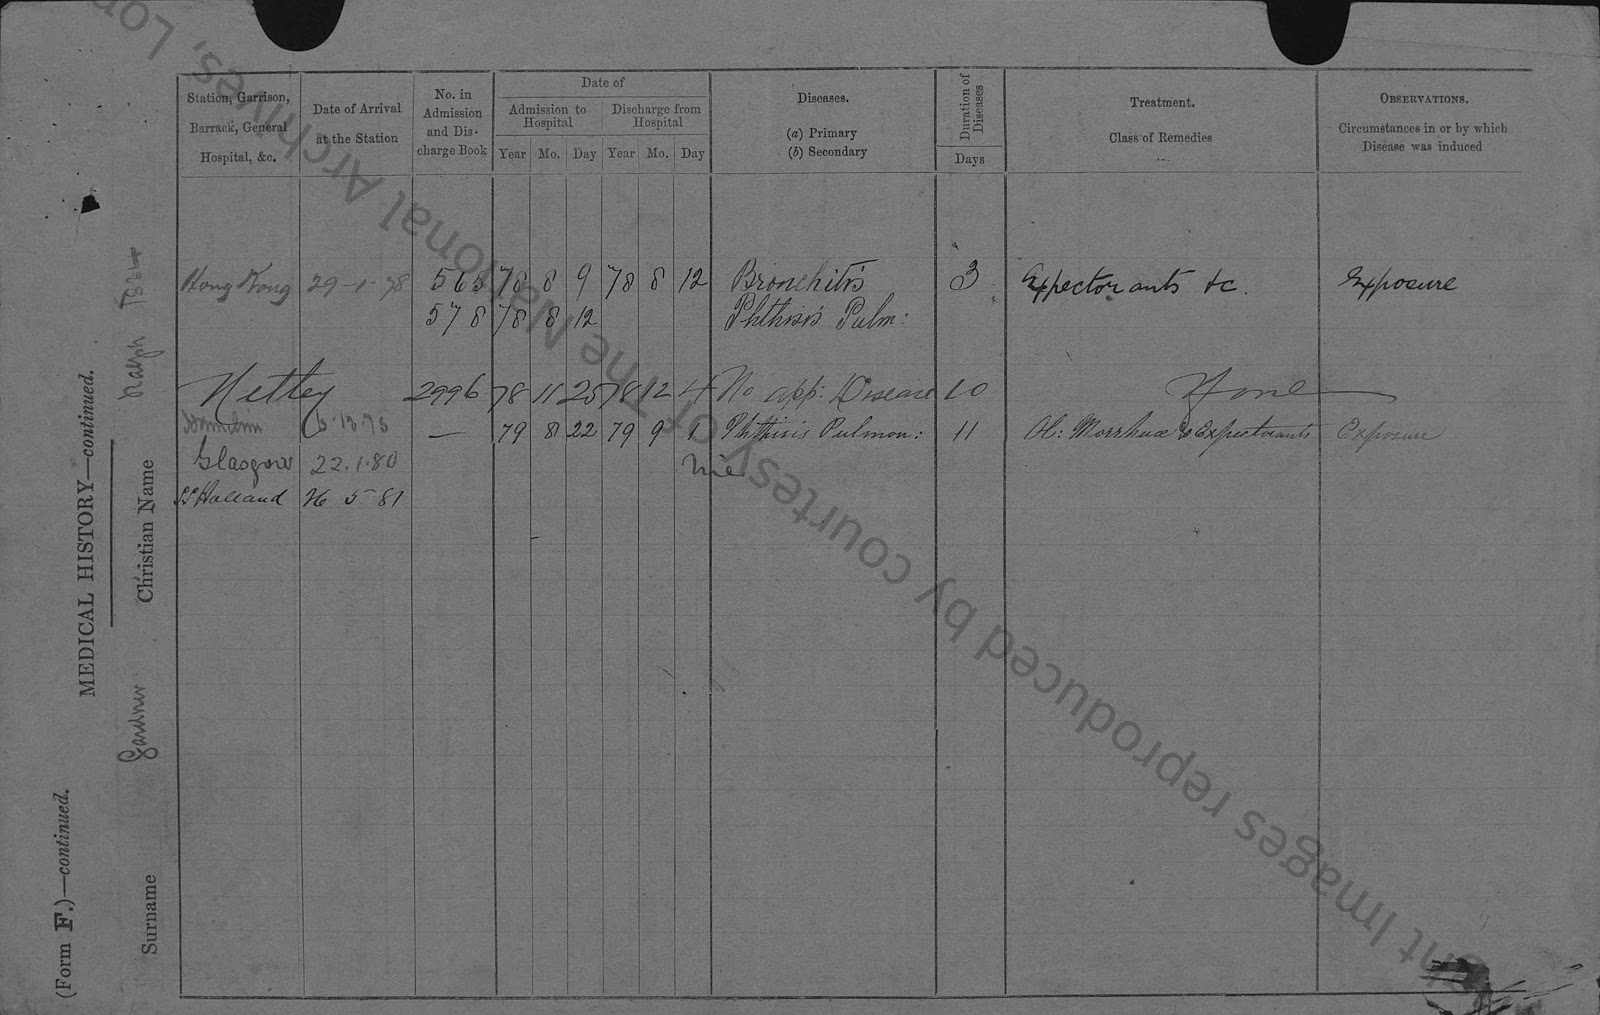 (Form F.)—continued.
MEDICAL HISTORY—continued.
Surname Gardner Christian Name Ralph
Station, Garrison, Barrack, General Hospital, &c.
Date of Arrival at the Station
No. in Admission and Discharge Book
Date of
Admission to Hospital
Discharge from Hospital
Year Mo. Day Year Mo. Day
Diseases.
(a) Primary
(b) Secondary
Duration of Diseases
Days
Treatment.
Class of Remedies
OBSERVATIONS.
Circumstances in or by which Disease was induced
Hong Kong 29-1-78 563 78 8 9 78 8 12 Bronchitis 3 Expectorants &c. Exposure
578 78 8 12 Phthisis Pulm:
Netley 2996 78 11 25 78 12 4 No app: Disease 10 None
— 79 8 22 79 9 1 Phthisis Pulmon: 11 Ol: Morrhuae & Expectorants Exposure
Glasgow 22.1.80
SS Holland 26 5 81
Images reproduced by courtesy of The National Archives, Lo